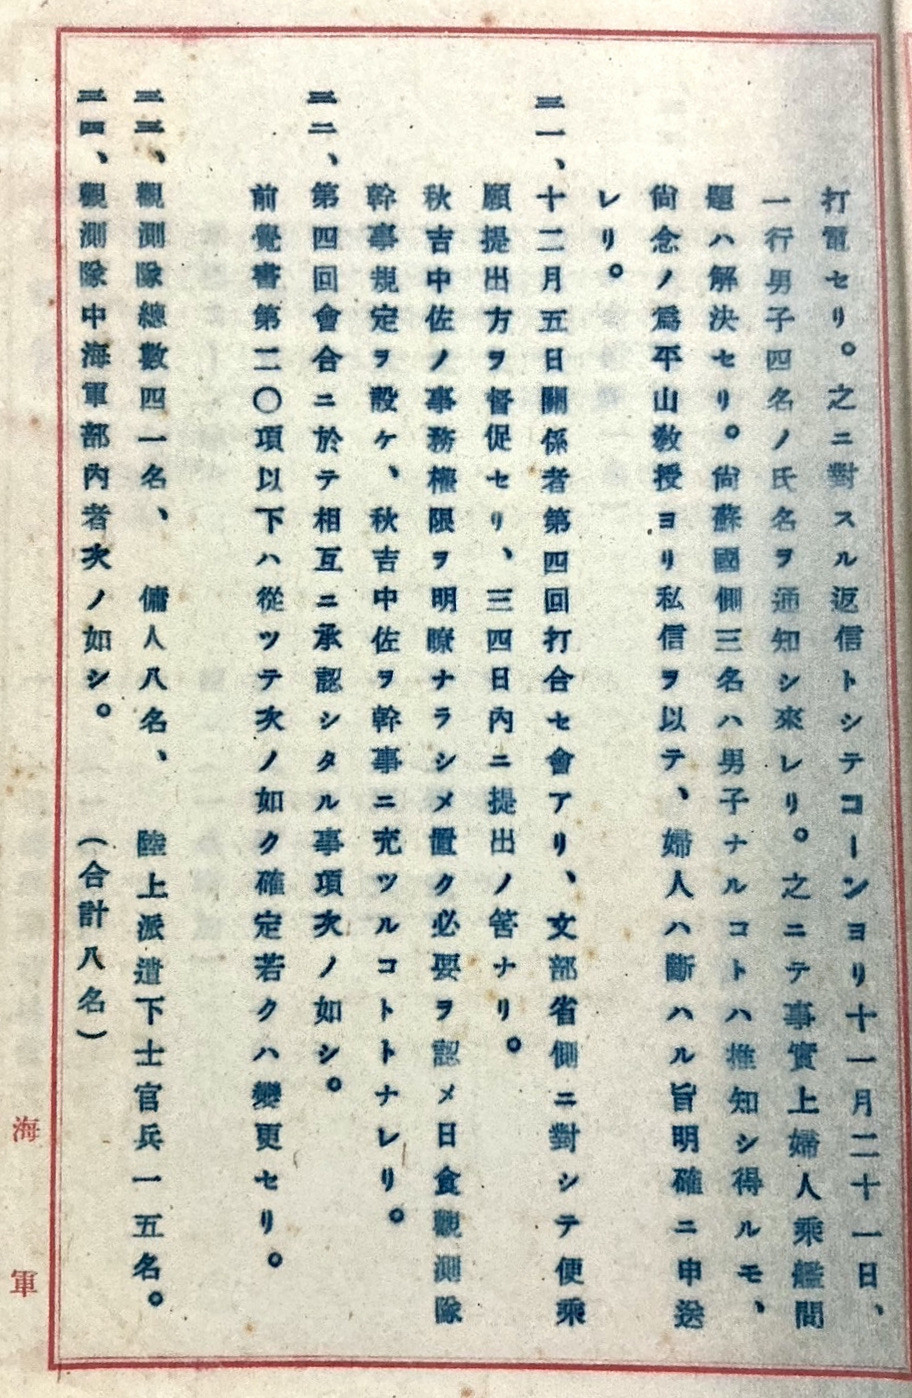 打電セリ。之ニ對スル返信トシテコーンヨリ十一月二十一日、
一行男子四名ノ氏名ヲ通知シ來レリ。之ニテ事實上婦人乘艦問
題ハ解決セリ。尙蘇國側三名ハ男子ナルコトハ推知シ得ルモ、
尙念ノ爲平山敎授ヨリ私信ヲ以テ、婦人ハ斷ハル旨明確ニ申送
レリ。
三一、十二月五日關係者第四回打合セ會アリ、文部省側ニ對シテ便乘
願提出方ヲ督促セリ、三四日內ニ提出ノ筈ナリ。
秋吉中佐ノ事務權限ヲ明瞭ナラシメ置ク必要ヲ認メ日食觀測隊
幹事規定ヲ設ケ、秋吉中佐ヲ幹事ニ充ツルコトトナレリ。
三二、第四回會合ニ於テ相互ニ承認シタル事項次ノ如シ。
前覺書第二〇項以下ハ從ツテ次ノ如ク確定若クハ變更セリ。
三三、觀測隊總數四一名、傭人八名、陸上派遣下士官兵一五名。
三四、觀測隊中海軍部內者次ノ如シ。(合計八名)
海軍